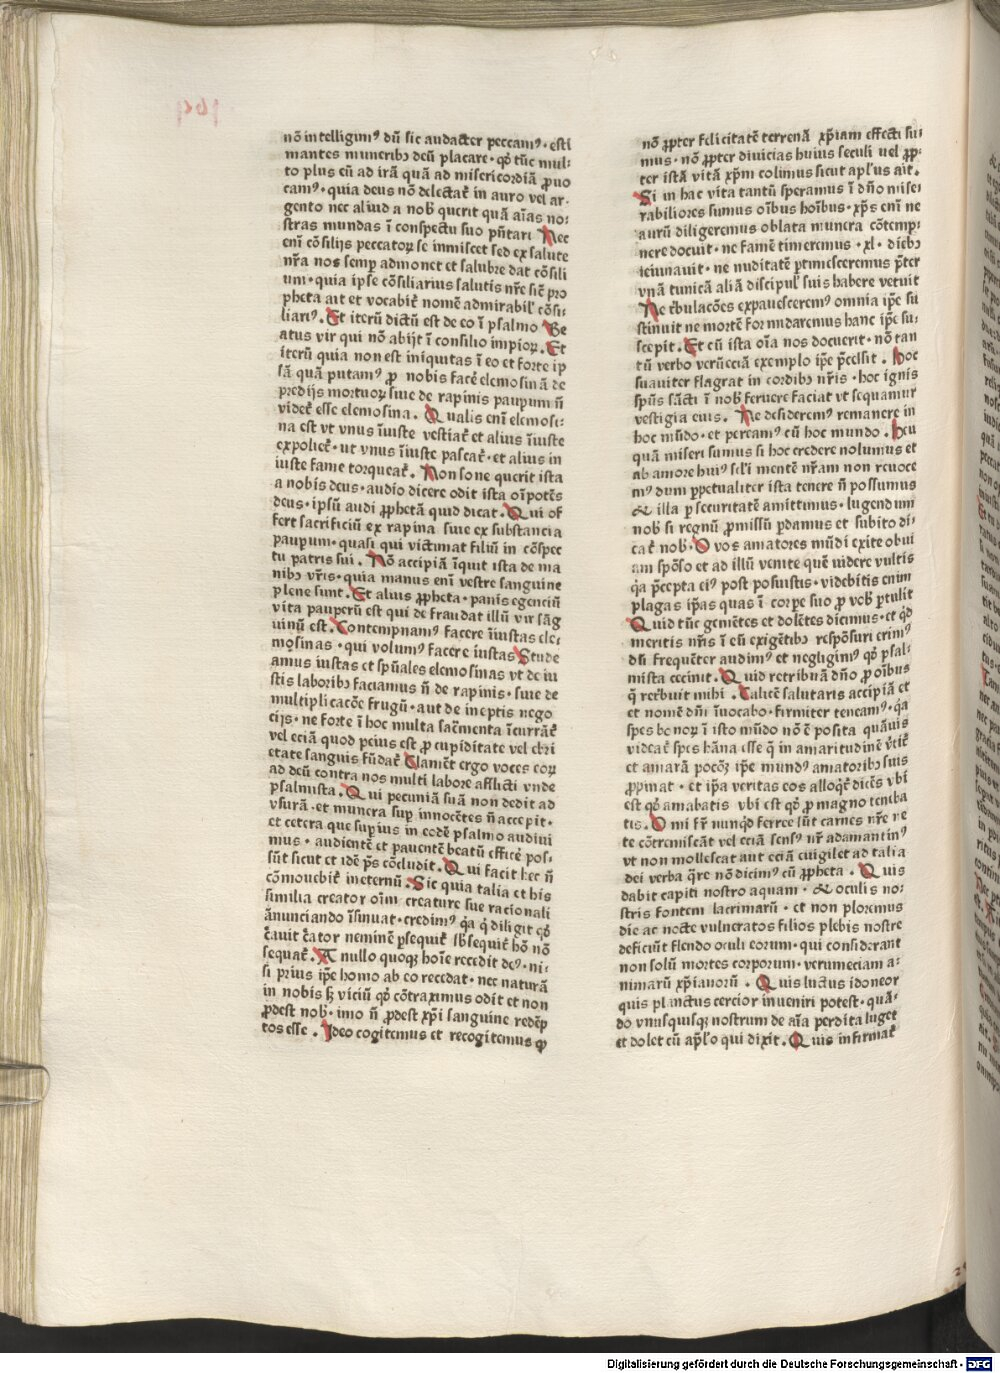 nō intelligimꝰ dū sic audacter peccamꝰ · esti
mantes muneribꝫ deū placare · qđ tūc mul⸗
to plus eū ad irā quā ad misericordiā ꝓuo
camꝰ · quia deus nō delectat̄ in auro vel ar⸗
gento nec aliud a nob̄ querit quā aīas no⸗
stras mundas ī conspectu suo pn̄tari Nec
enī cōsilijs peccatoꝝ se inmiscet sed ex salute
nr̄a nos semꝑ admonet et salubre dat cōsili
um · quia ipse cōsiliarius salutis nr̄e sic̄ pro
pheta ait et vocabit̄ nomē admirabil̓ cōsi⸗
liariꝰ . Et iterū dictū est de eo ī psalmo Be
atus vir qui nō abijt ī consilio impioꝝ . Et
iterū quia non est iniquitas ī eo et forte ip
sā quā putamꝰ ꝓ nobis facē elemosinā de
predijs mortuoꝝ siue de rapinis pauꝑum n̄
videt̄ esse elemosina . Qualis enī elemosi⸗
na est vt vnus īiuste vestiat̄ et alius īiuste
expoliet̄ · ut vnus īiuste pascat̄ · et alius in
iuste fame torqueat̄ . Non sone querit ista
a nobis deus · audio dicere odit ista oīpotēs
deus · ipsū audi ꝓphetā quid dicat . Qui of
fert sacrificiū ex rapina siue ex substancia
pauꝑum · quasi qui victimat filiū in cōspec
tu patris sui . Nō accipiā īquit ista de ma
nibꝫ vr̄is · quia manus enī vestre sanguine
plene sunt . Et alius ꝓpheta · panis egenciū
vita pauperū est qui defraudat illū vir sāg
uinū est . Contempnamꝰ facere īiustas ele⸗
mosinas · qui volumꝰ facere iustas Stude
amus iustas et spūales elemosinas vt de iu
stis laboribꝫ faciamus n̄ de rapinis · siue de
multiplicacōe frugū · aut de ineptis nego
cijs · ne forte ī hoc multa sac̄menta īcurrāt̄
vel eciā quod peius est ꝓ cupiditate vel ebri
etate sanguis fūdat̄ Clamēt ergo voces eoꝝ
ad deū contra nos multi labore afflicti vnde
psalmista . Qui pecuniā suā non dedit ad
vsurā · et munera suꝑ innocētes n̄ accepit ·
et cetera que suꝑius in eodē psalmo audiui
mus · audientē et pauentē beatū efficē posi
sūt sicut et idē ꝓs cōcludit . Qui facit hec n̄
cōmouebit̄ in eternū . Sic quia talia et his
similia creator oīm creature sue racionali
ānunciando īsinuat · credimꝰ q̄a q̄ diligit qđ
c̄auit c̄ator neminē ꝑsequit̄ sb̄sequit̄ hō nō
sequat̄ . A nullo quoqꝫ hoīe recedit deꝰ · ni⸗
si prius ip̄e homo ab eo recedat · nec naturā
in nobis sꝫ viciū qđ cōtraximus odit et non
ꝓdest nob̄ · imo n̄ ꝓdest xp̄i sanguine redēp
tos esse . Ideo cogitemus et recogitemus ꝙ
nō ꝓpter felicitatē terrenā xp̄iani effecti su⸗
mus · nō ꝓpter diuicias huius seculi uel ꝓp⸗
ter istā vitā xp̄m colimus sicut apl̓us ait .
Si in hac vita tantū speramus ī dn̄o miser
rabiliores sumus oībus hoībus · xp̄s enī ne
aurū diligeremus oblata munera cōtemp⸗
nere docuit · ne famē timeremus · xl · diebꝫ
ieiunauit · ne nuditatē ꝑtimesceremus p̄ter
vnā tunicā aliā discipul̓ suis habere vetuit
Ne t̄bulacōes expauescerem omnia ip̄e su
stinuit ne mortē formidaremus hanc ip̄e su⸗
scepit . Et cū ista oīa nos docuerit · nō tan
tū verbo verū eciā exemplo ip̄e p̄cessit . Hoc
suauiter flagrat in cordibꝫ nr̄is · hoc ignis
spūs sāctī ī nob̄ feruere faciat vt sequamur
vestigia eius . Ne desideremꝰ remanere in
hoc mūdo · et pereamꝰ cū hoc mundo . Heu
quā miseri sumus si hoc credere nolumus et
ab amore huiꝰ sc̄li mentē nr̄am non reuoce
mꝰ dum ꝑpetualiter ista tenere n̄ possumus
& illa ꝑ securitatē amittimus · lugendum
nob̄ si regnū ꝓmissū ꝑdamus et subito di⸗
cat̄ nob̄ . O vos amatores mūdi exite obui
am spōso et ad illū venite quē uidere vultis
q̄a p̄cepta eiꝰ post posuistis · videbitis enim
plagas ip̄as quas ī corꝑe suo ꝓ vob̄ ꝑtulit
Quid tūc gemētes et dolētes dicimus · et q̄d
meritis nr̄is ī eū exigētibꝫ respōsuri erimꝰ
dū frequēter audimꝰ et negligimꝰ qđ psal⸗
mista cecinit . Quid retribuā dn̄o ꝓ oībus
q̄ retbuit mihi . Calicē salutaris accipiā et
et nomē dn̄i īuocabo · firmiter teneamꝰ · q̄a
spes bonoꝝ ī isto mūdo nō ē posita quāuis
videat̄ spes hūana esse q̄ in amaritudinē v̄tit̄
et amarā pocōꝫ ip̄e mundꝰ amatoribꝫ suis
ꝓpinat · et ip̄a veritas eos alloqt̄ dicēs vbī
est qđ amabatis vbi est qđ ꝓ magno teneba
tis . O mi fr̄ nunqđ ferree sūt carnes nr̄e ne
te cōtremiscāt vel eciā sensꝰ nr̄ adamantinꝰ
vt non mollescat aut eciā euigilet ad talia
dei verba q̄re nō dicimꝰ cū ꝓpheta . Quis
dabit capiti nostro aquam · & oculis no⸗
stris fontem lacrimarū · et non ploremus
die ac nocte vulneratos filios plebis nostre
deficiūt flendo oculi eorum · qui considerant
non solū mortes corporum · verumeciam a⸗
nimarū xp̄ianorū . Quis luctus idoneor
quis planctus cercior inueniri potest · quā⸗
do vnusquisqꝫ nostrum de aīa perdita luget
et dolet cū apl̓o qui dixit . Quis infirmat̄
Digitalisierung gefördert durch die Deutsche Forschungsgemeinschaft - DFG